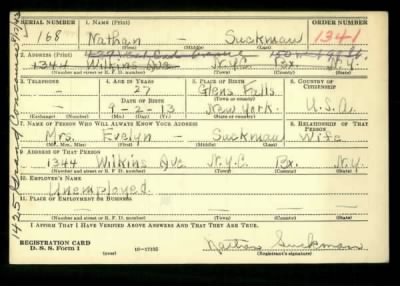 SERIAL NUMBER 1. NAME (Print) ORDER NUMBER
168 Nathan — Suckman 1341
(First) (Middle) (Last)
2. ADDRESS (Print)
1344 Wilkins Ave. N.Y.C. Bx. N.Y.
(Number and street or R. F. D. number) (Town) (County) (State)
3. TELEPHONE 4. AGE IN YEARS 5. PLACE OF BIRTH 6. COUNTRY OF CITIZENSHIP
— 27 Glens Falls
DATE OF BIRTH (Town or county)
9-2-13 New York. U.S.A.
(Exchange) (No.) (Mo.) (Day) (Yr.) (State or country)
7. NAME OF PERSON WHO WILL ALWAYS KNOW YOUR ADDRESS 8. RELATIONSHIP OF THAT PERSON
Mrs. Evelyn — Suckman Wife
(Mr., Mrs., Miss) (First) (Middle) (Last)
9. ADDRESS OF THAT PERSON
1344 Wilkins Ave N.Y.C. Bx. N.Y.
(Number and street or R. F. D. number) (Town) (County) (State)
10. EMPLOYER'S NAME
Unemployed.
11. PLACE OF EMPLOYMENT OR BUSINESS
(Number and street or R. F. D. number) (Town) (County) (State)
I AFFIRM THAT I HAVE VERIFIED ABOVE ANSWERS AND THAT THEY ARE TRUE.
REGISTRATION CARD
D. S. S. Form 1 (over) 16-17105 Nathan Suckman
(Registrant's signature)
1425